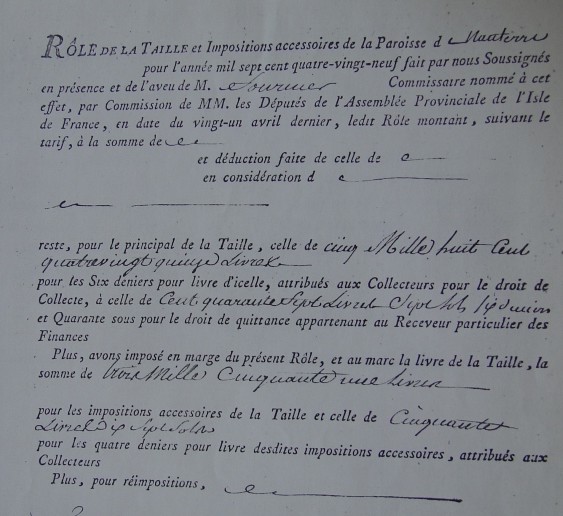 RÔLE DE LA TAILLE et Impositions accessoires de la Paroisse d e Nanterre
pour l'année mil sept cent quatre-vingt-neuf fait par nous Soussignés
en présence et de l'aveu de M. Fournier Commissaire nommé à cet
effet, par Commission de MM. les Députés de l'Assemblée Provinciale de l'Isle
de France, en date du vingt-un avril dernier, ledit Rôle montant, suivant le
tarif, à la somme de
et déduction faite de celle de
en considération d
reste, pour le principal de la Taille, celle de cinq Mille huit Cent
quatrevingt quinze Livres
pour les Six deniers pour livre d'icelle, attribués aux Collecteurs pour le droit de
Collecte, à celle de Cent quarante Sept Livres Sept Sols
et Quarante sous pour le droit de quittance appartenant au Receveur particulier des
Finances
Plus, avons imposé en marge du présent Rôle, et au marc la livre de la Taille, la
somme de trois Mille Cinquante une Livres
pour les impositions accessoires de la Taille et celle de Cinquante
Livres dix Sept Sols
pour les quatre deniers pour livre desdites impositions accessoires, attribués aux
Collecteurs
Plus, pour réimpositions,